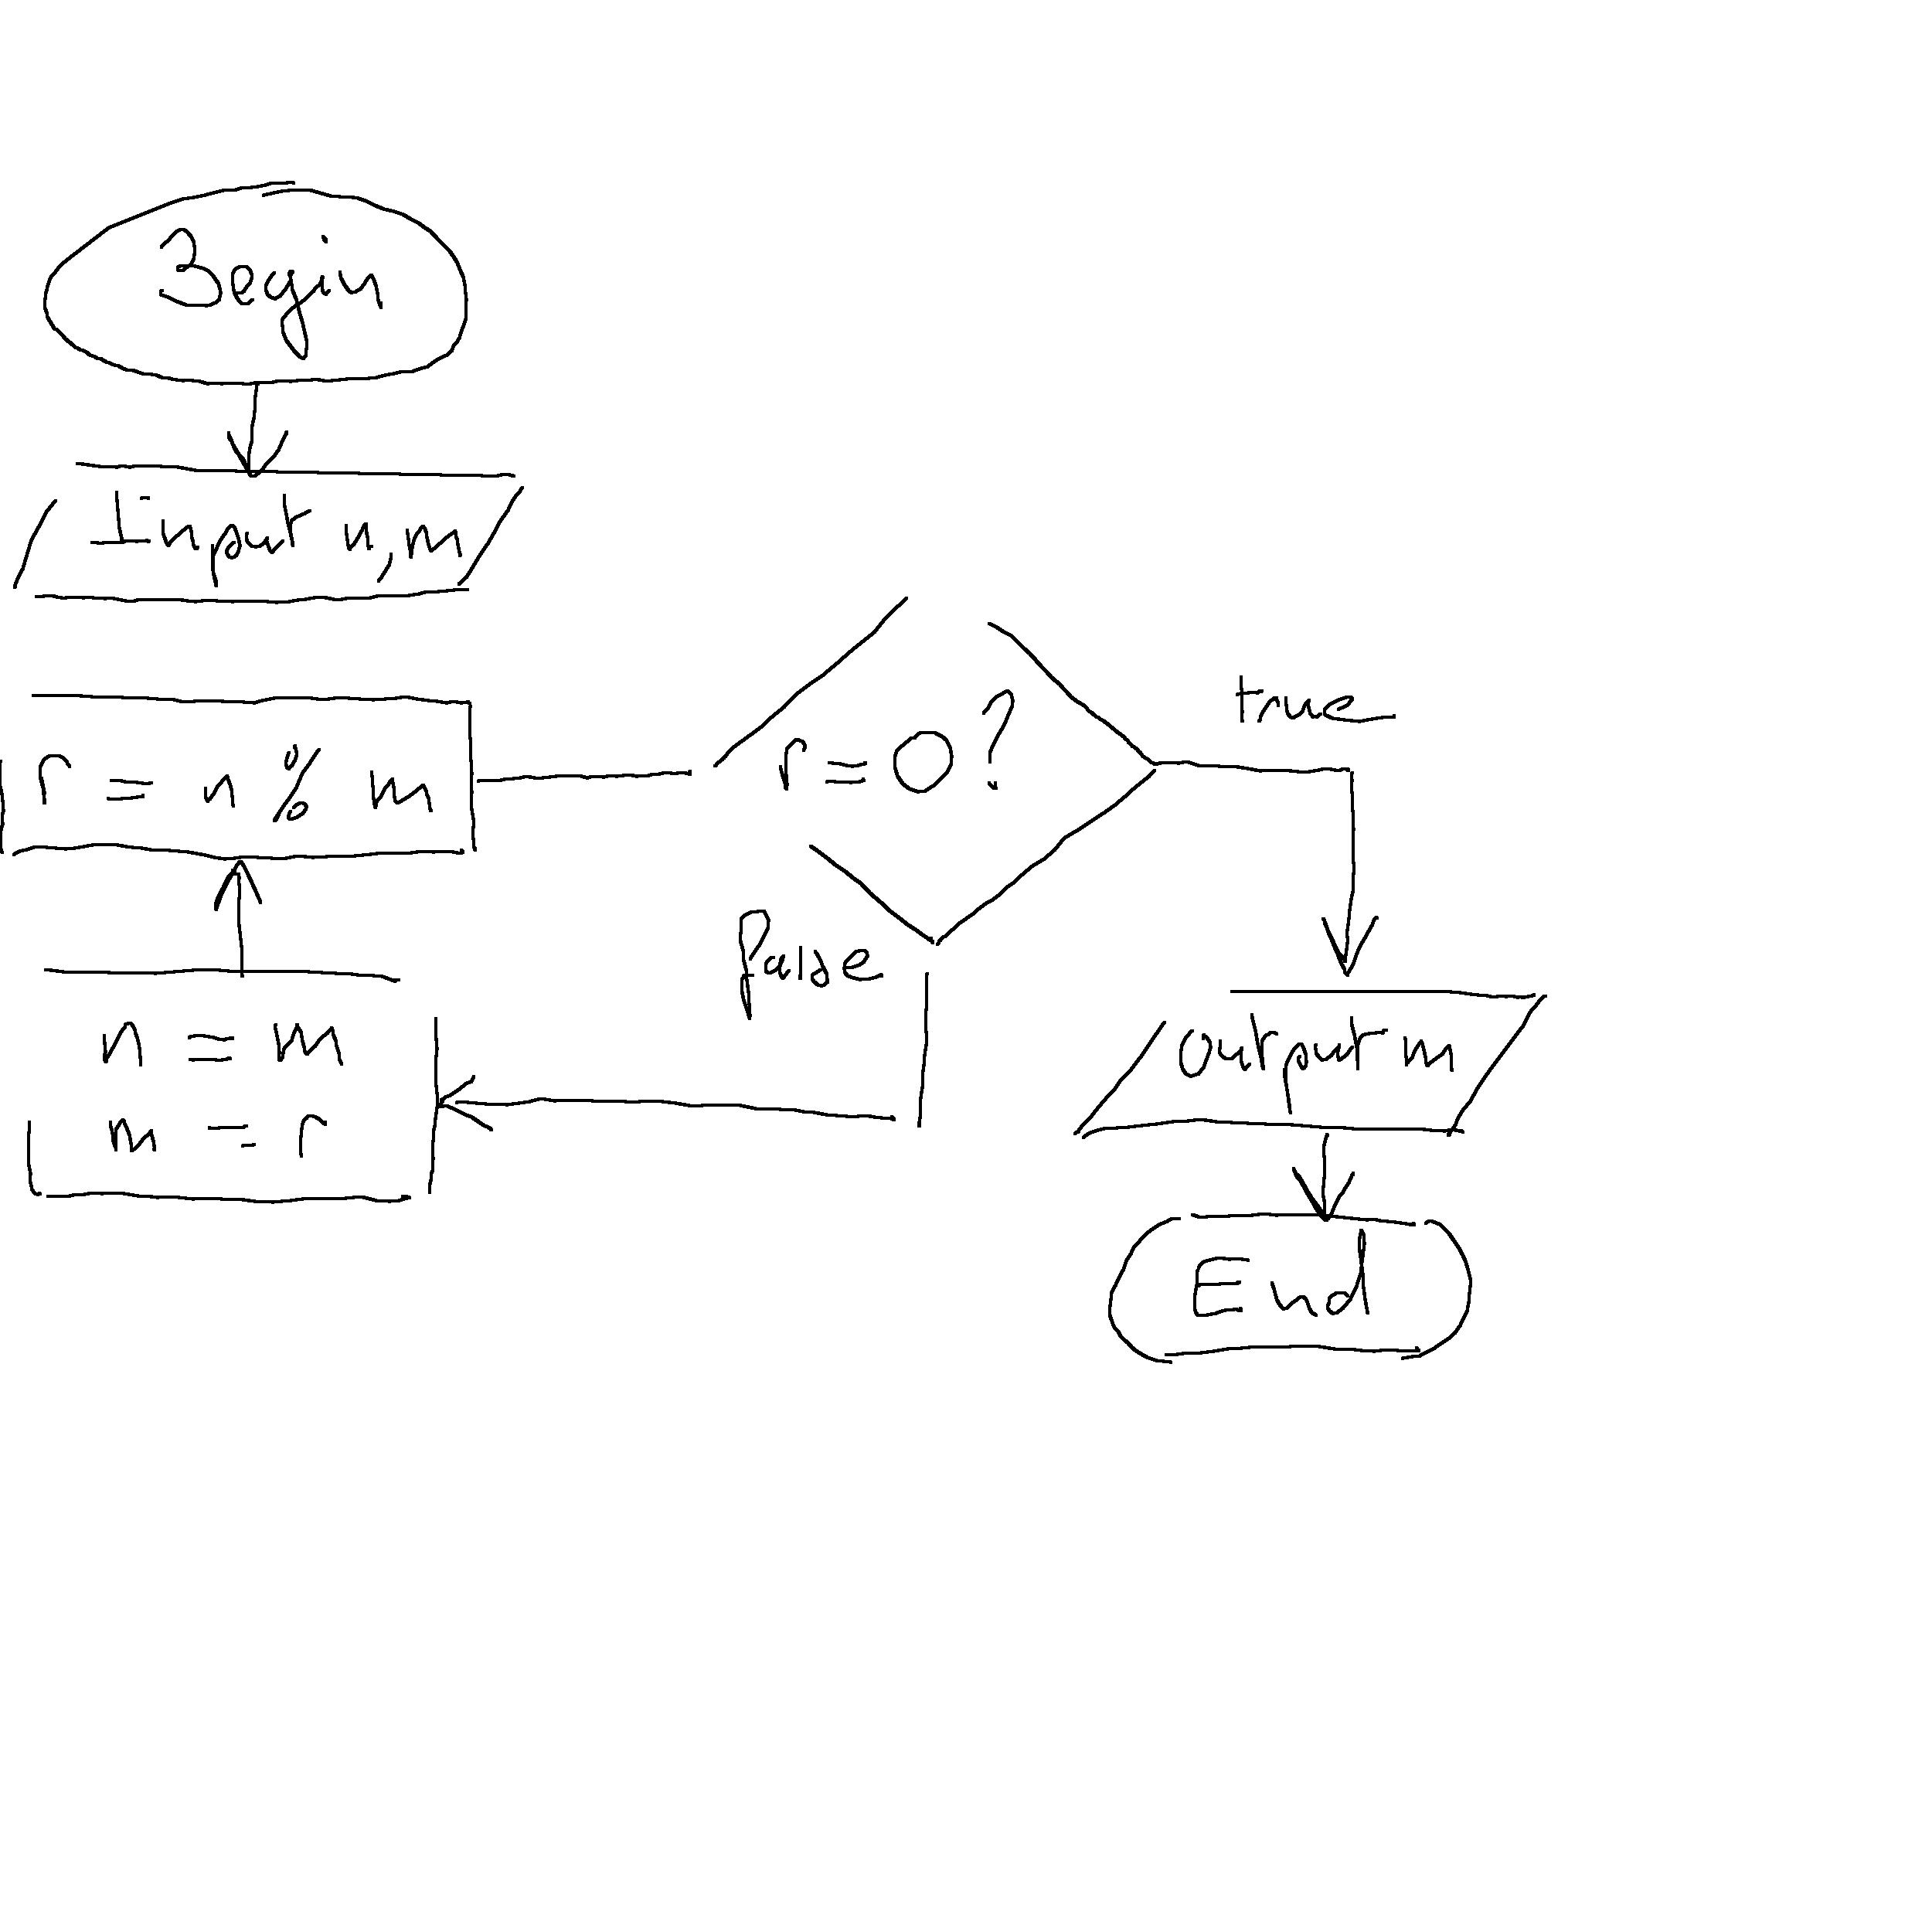 Begin
Input n, m
r = n % m
r = 0 ?
true
false
n = m
m = r
Output m
End